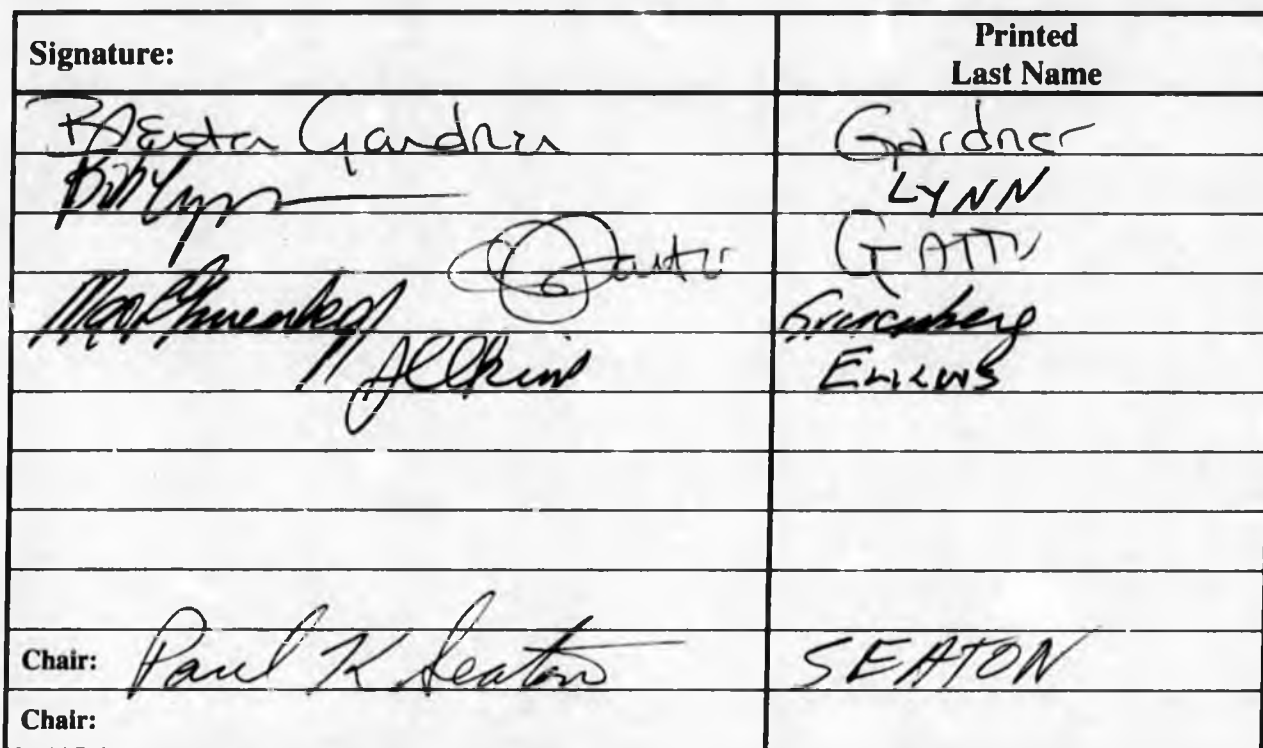 Signature: Printed Last Name
Berta Gardner Gardner
Bob Lynn LYNN
Gatto GATTO
Max Gruenberg Gruenberg
Elkins
Chair: Paul K Seaton SEATON
Chair: